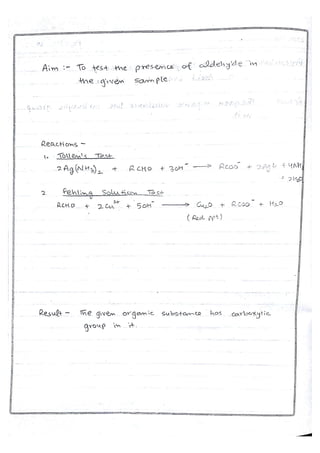 Aim :- To test the presence of aldehyde in
the given sample.
Reactions -
1. Tollen's Test
2Ag(NH3)2 + RCHO + 3OH⁻ → RCOO⁻ + 2Ag↓ + 4NH3
+ 2H2O
2 Fehling Solution Test
RCHO + 2Cu²⁺ + 5OH⁻ → Cu2O + RCOO⁻ + H2O
(Red ppt)
Result - The given organic substance has carboxylic
group in it.